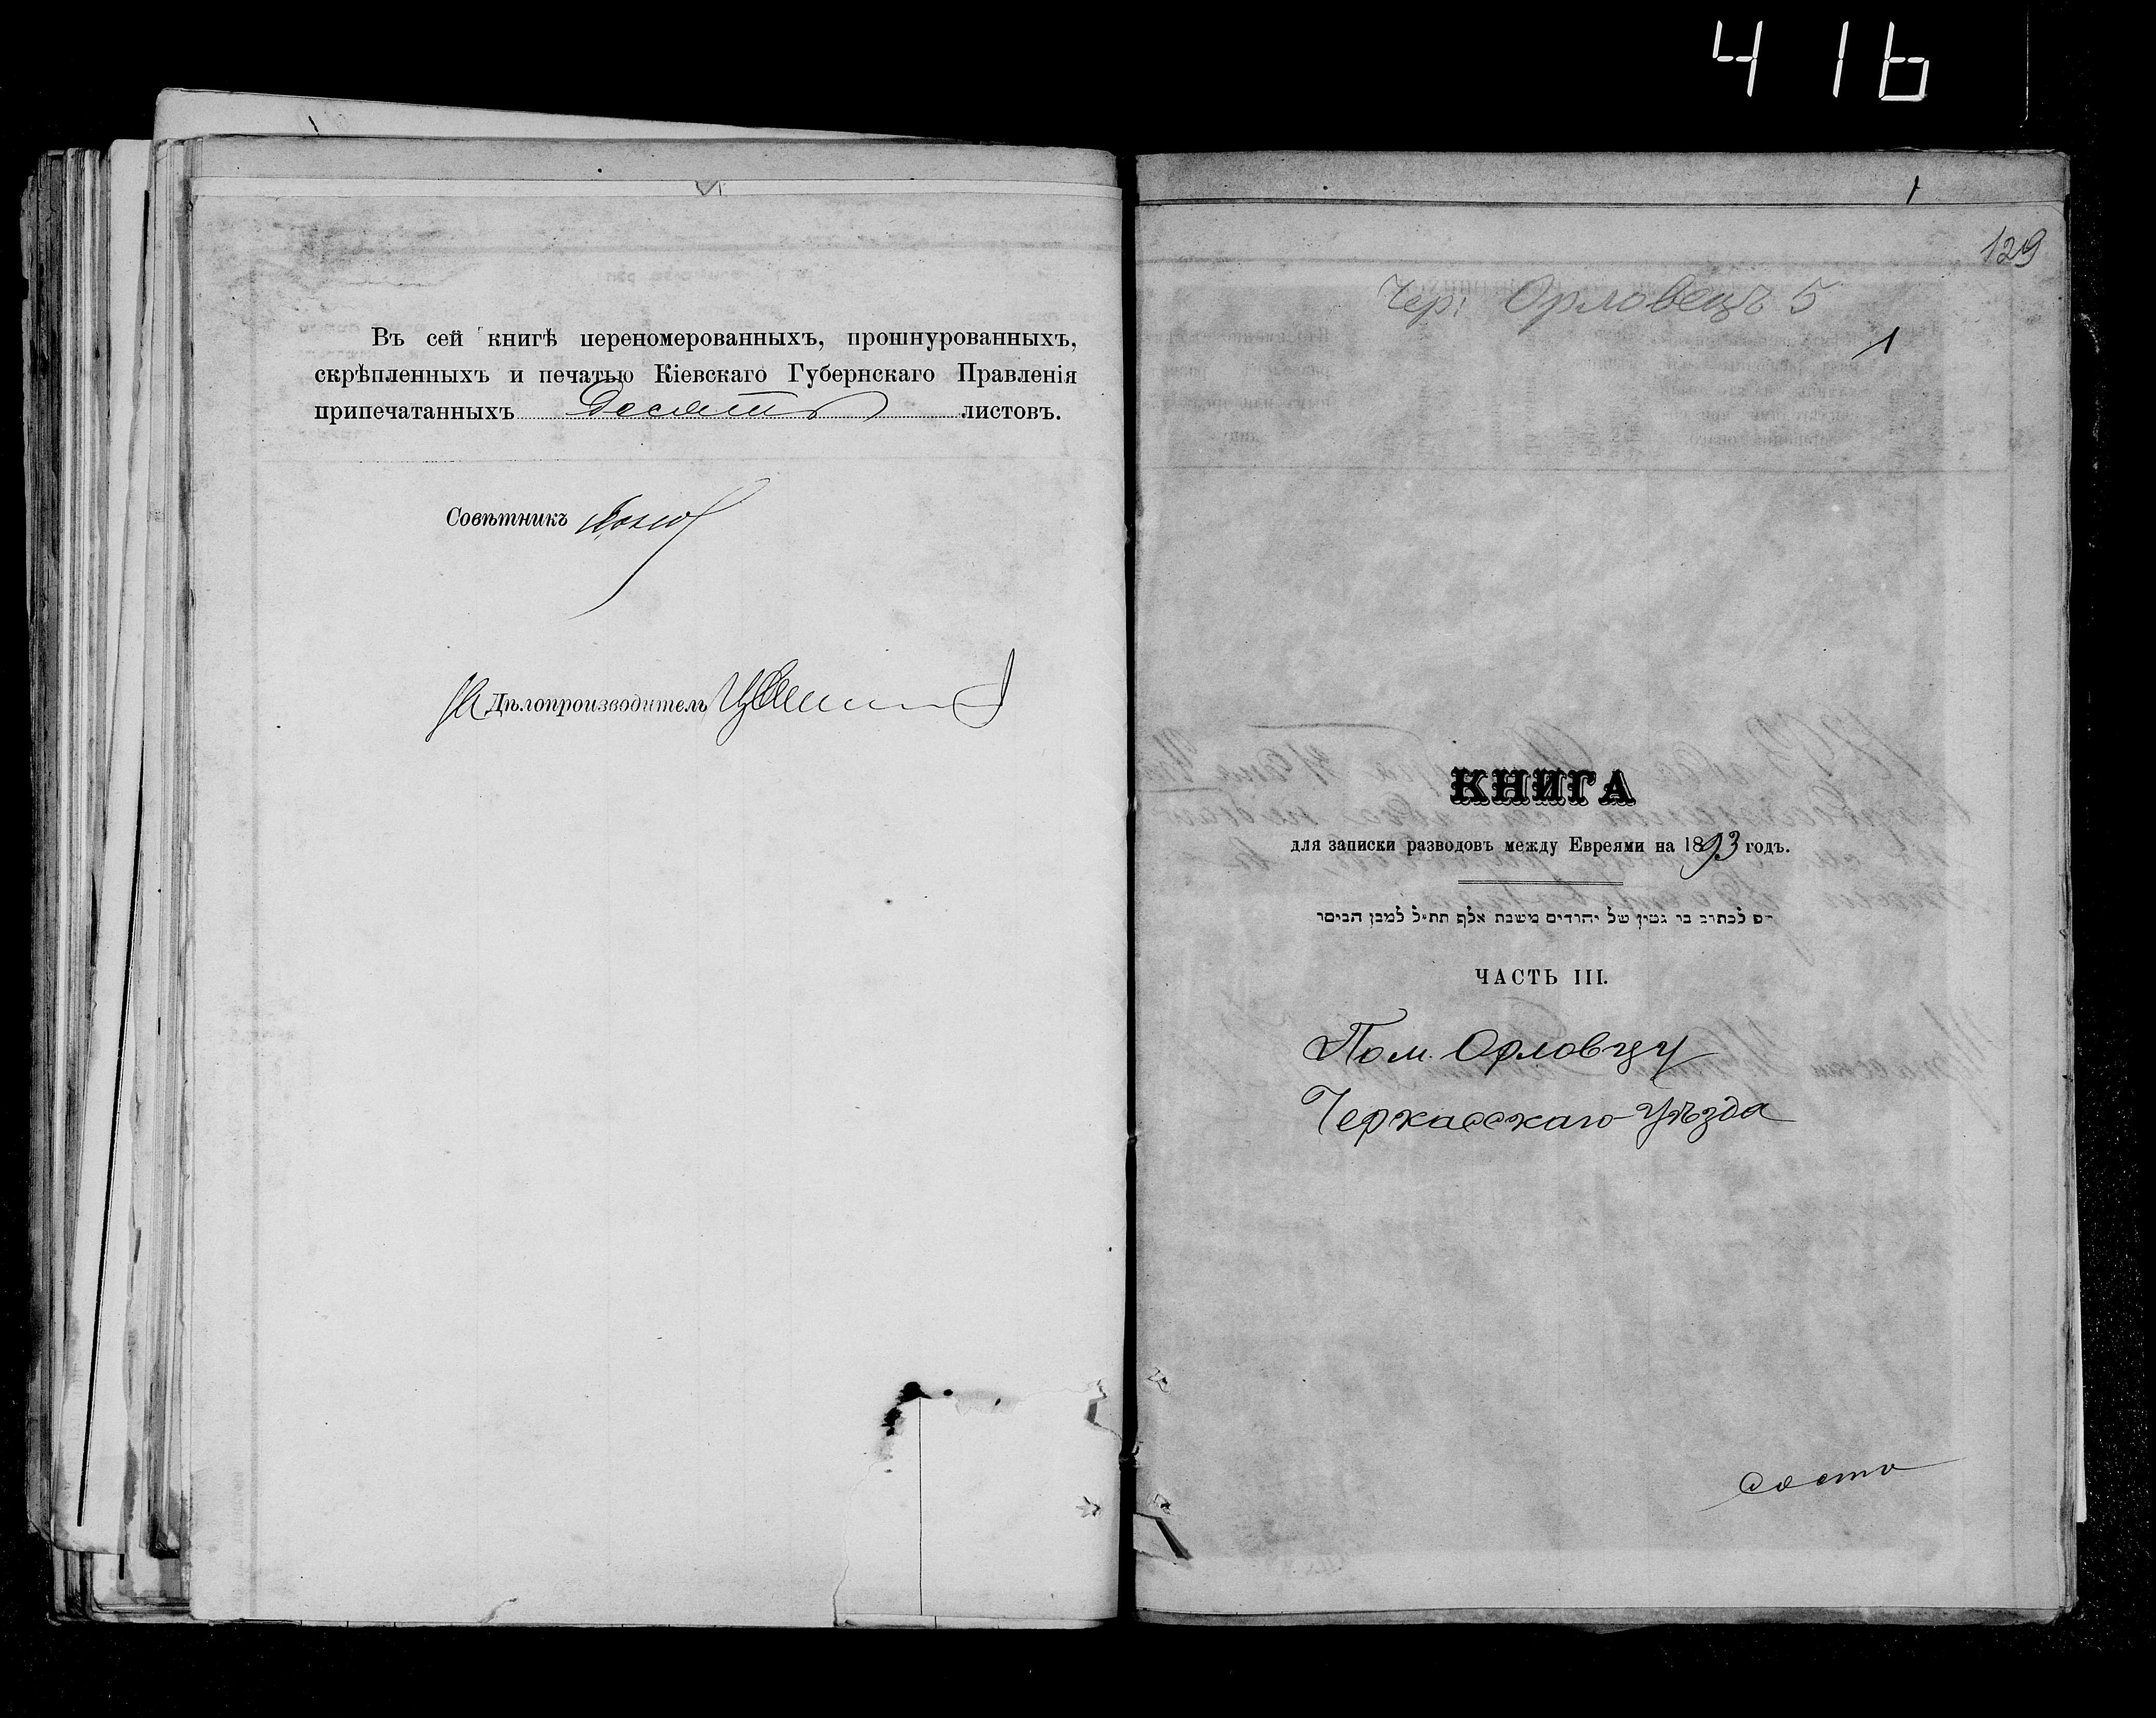 416
Въ сей книгѣ переномерованныхъ, прошнурованныхъ,
скрѣпленныхъ и печатью Кіевскаго Губернскаго Правленія
припечатанныхъ десять листовъ.
Совѣтникъ
Дѣлопроизводитель
129
Чер: Орловецъ 5
1
КНИГА
для записки разводовъ между Евреями на 1893 годъ.
לכתוב בו גטין של יהודים משנת אלף תת״ל למבן הביסר
ЧАСТЬ III.
По м. Орловцу
Черкасскаго уѣзда